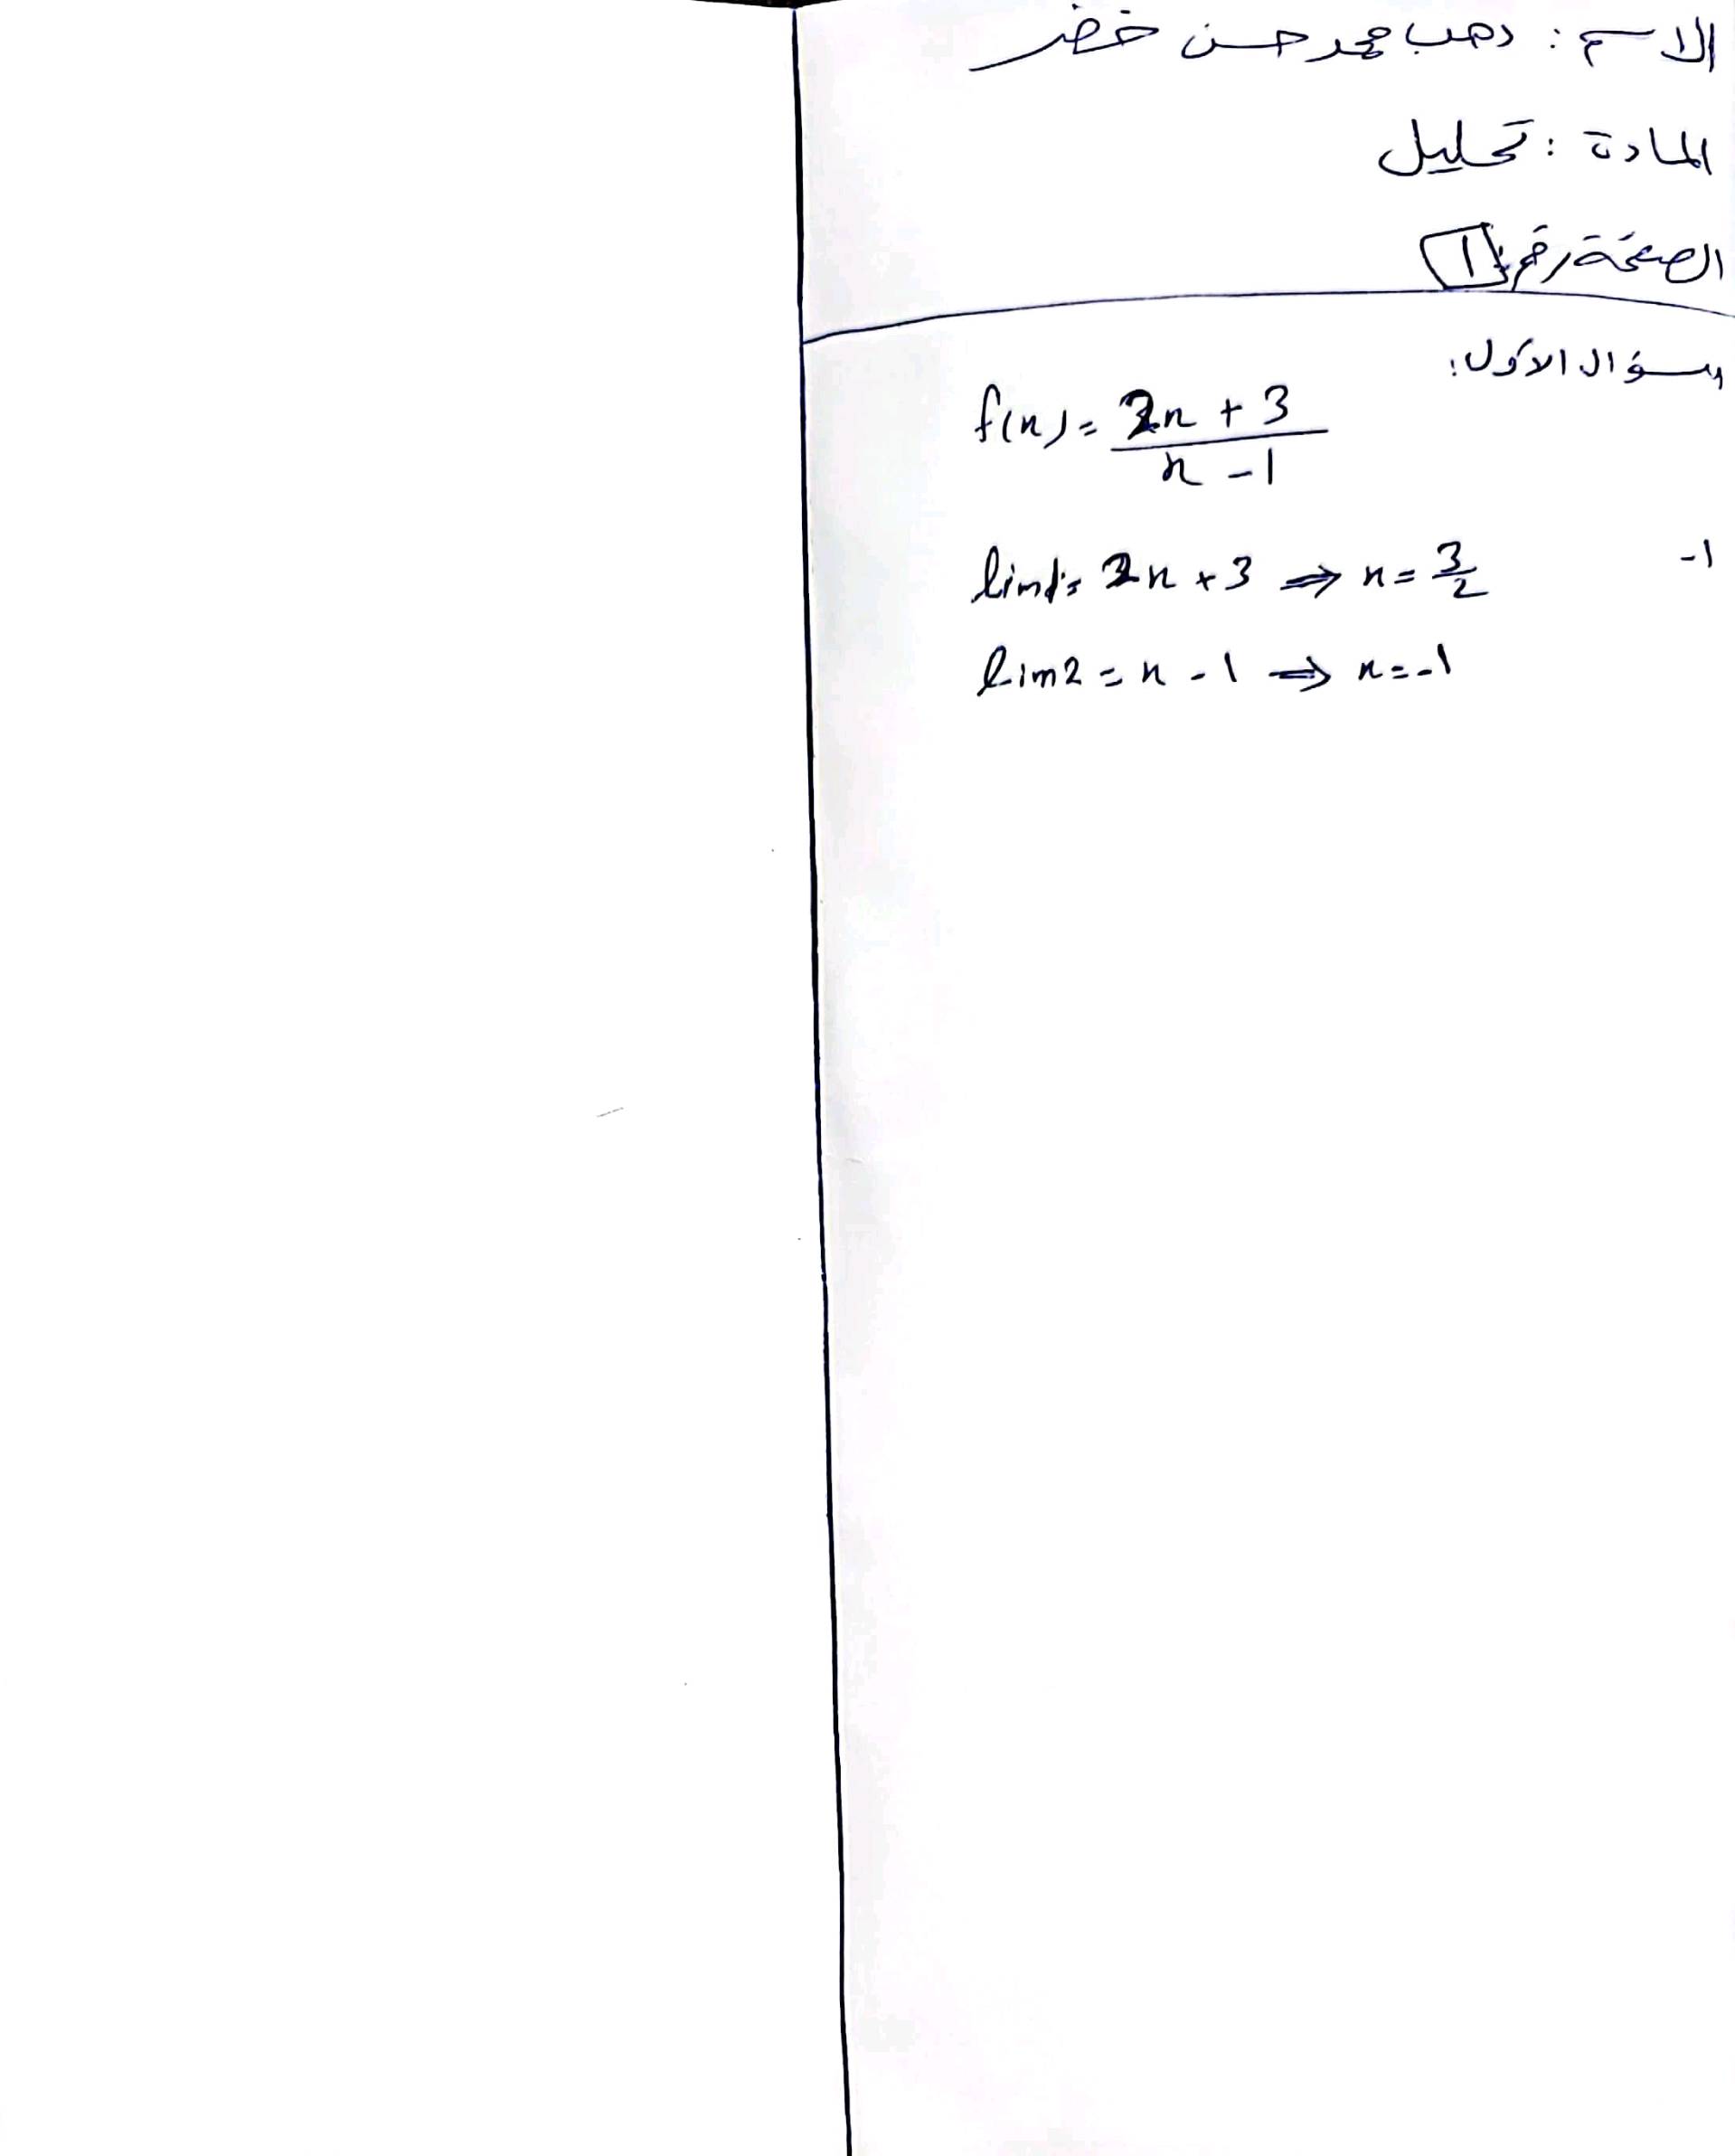 الاسم : وهب محمد حسن خضر
المادة : تحليل
الصفحة رقم: 1
السؤال الأول:
f(n) = 2n + 3 / n - 1
1- lim1 = 2n + 3 ⇒ n = 3/2
lim2 = n - 1 ⇒ n = -1